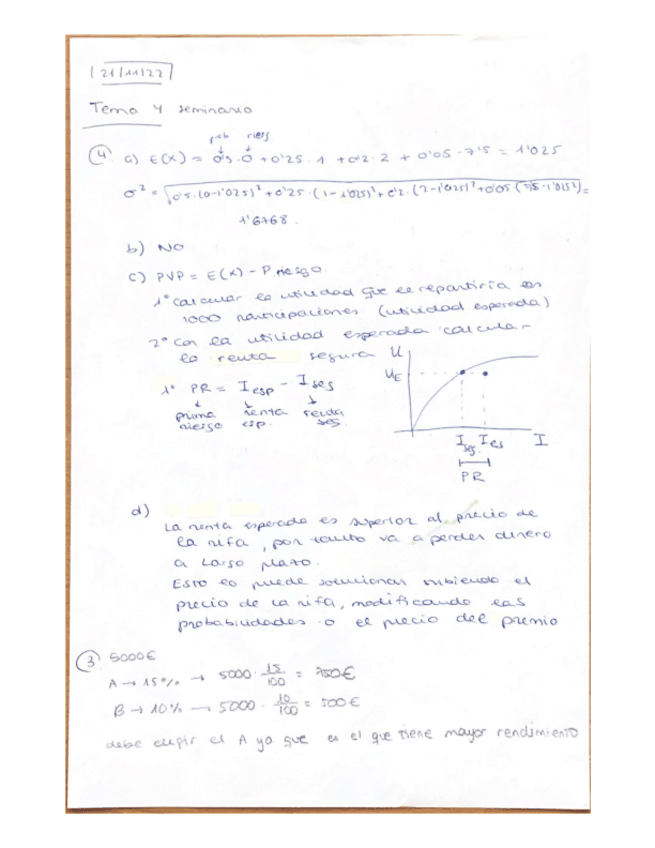 21/11/22
Tema 4 seminario
prob riesg
④ a) E(X) = 0'5·0 + 0'25·1 + 0'2·2 + 0'05·7'5 = 1'025
σ² = √0'5·(0-1'025)²+0'25·(1-1'025)²+0'2·(2-1'025)²+0'05·(7'5-1'025²) =
1'6768.
b) No
c) PVP = E(X) - P riesgo
1º Calcular la utilidad que se repartiria en
1000 participaciones (utilidad esperada)
2º Con la utilidad esperada calcular
la renta segura
1º PR = I esp - I seg
prima renta renta
riesgo esp. seg.
U
UE
I seg. I es I
PR
d)
La renta esperada es superior al precio de
la rifa, por tanto va a perder dinero
a largo plazo.
Esto lo puede solucionar subiendo el
precio de la rifa, modificando las
probabilidades o el precio del premio
③ 5000€
A → 15% → 5000 · 15/100 = 750€
B → 10% → 5000 · 10/100 = 500€
debe elegir el A ya que es el que tiene mayor rendimiento